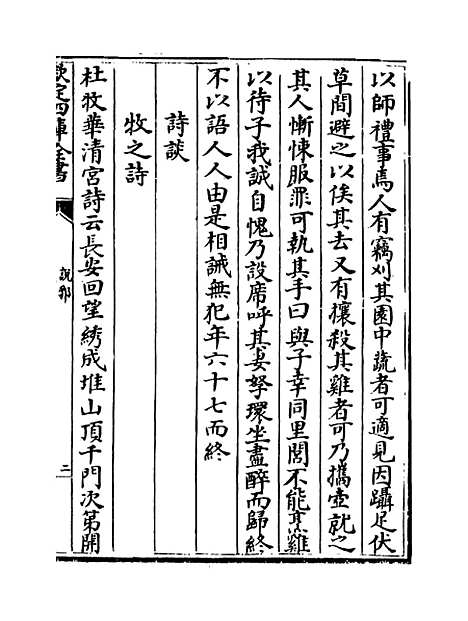 以師禮事焉人有竊刈其園中蔬者可適見因躡足伏
草間避之以俟其去又有攘殺其雞者可乃攜壺就之
其人慚悚服罪可執其手曰與子幸同里閭不能烹雞
以待子我誠自愧乃設席呼其妻孥環坐盡醉而歸終
不以語人人由是相誡無犯年六十七而終
詩談
牧之詩
杜牧華清宮詩云長安回望綉成堆山頂千門次第開
欽定四庫全書
說郛
三